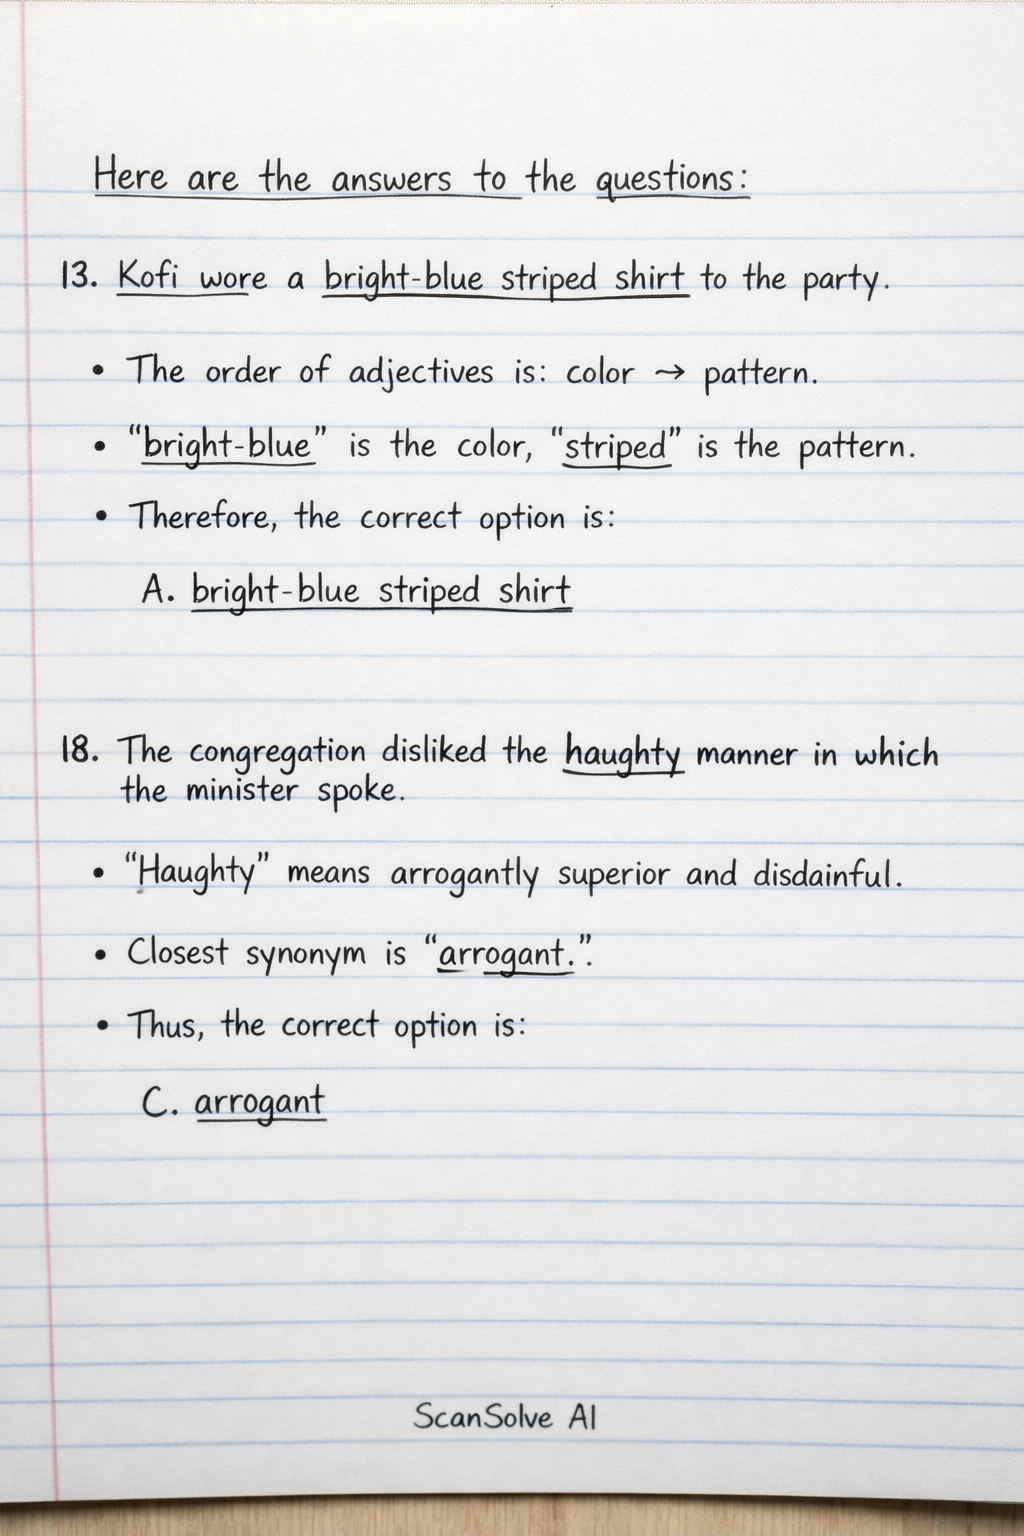 Here are the answers to the questions:
13. Kofi wore a bright-blue striped shirt to the party.
• The order of adjectives is: color → pattern.
• “bright-blue” is the color, “striped” is the pattern.
• Therefore, the correct option is:
A. bright-blue striped shirt
18. The congregation disliked the haughty manner in which
the minister spoke.
• “Haughty” means arrogantly superior and disdainful.
• Closest synonym is “arrogant.”.
• Thus, the correct option is:
C. arrogant
ScanSolve AI